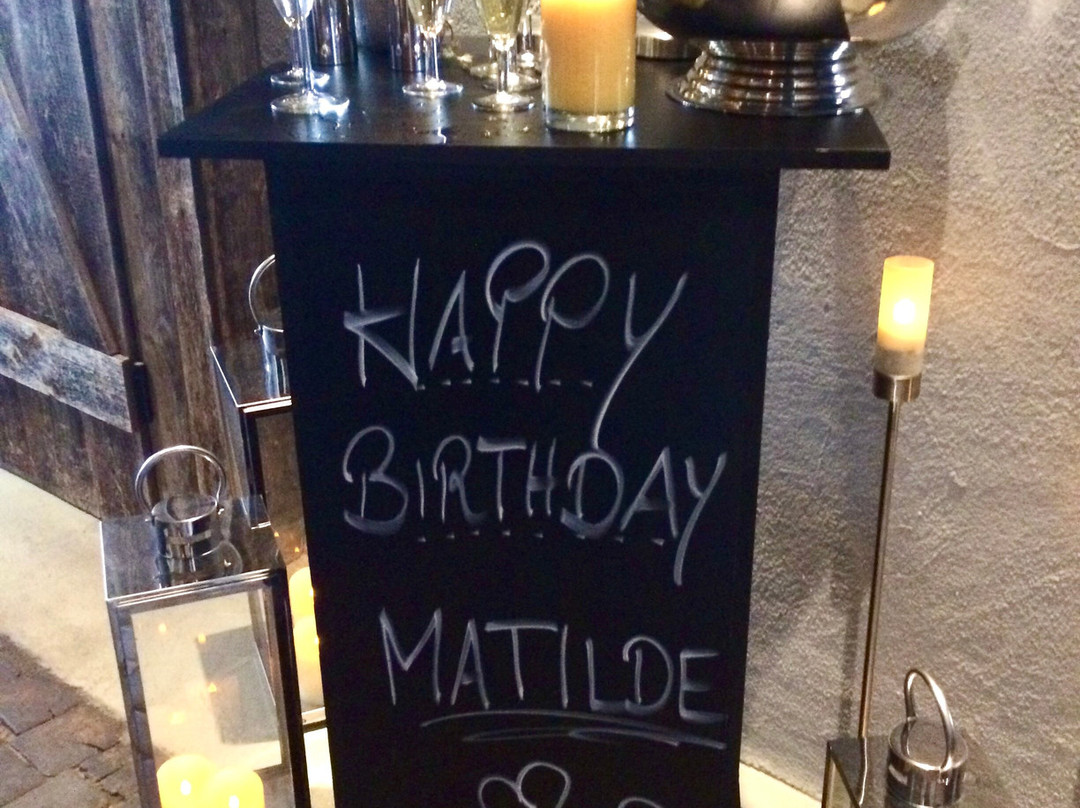 HAPPY
BIRTHDAY
MATILDE